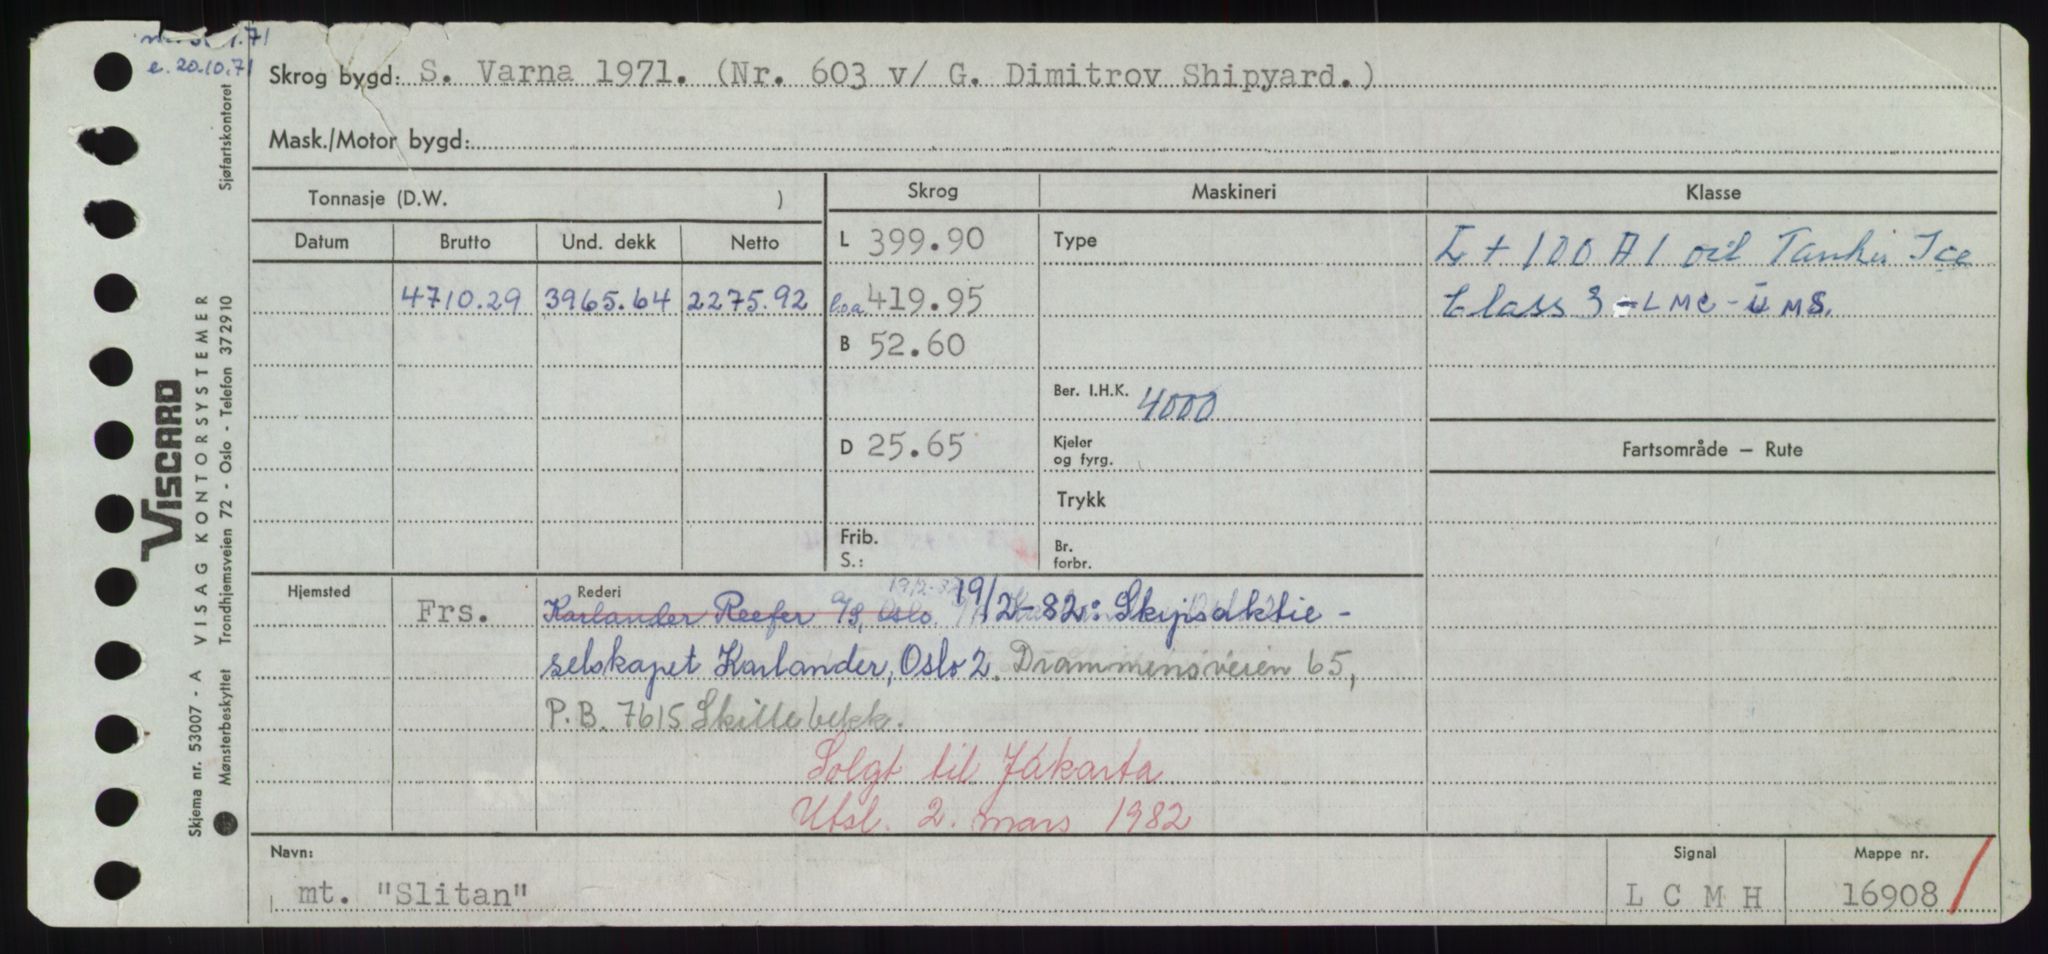 e. 20.10.71
Skrog bygd: S. Varna 1971. (Nr. 603 v/ G. Dimitrov Shipyard.)
Mask./Motor bygd:
Tonnasje (D.W. )
Skrog
Maskineri
Klasse
Datum
Brutto
Und. dekk
Netto
4710.29 3965.64 2275.92
L 399.90
l.o.a 419.95
B 52.60
D 25.65
Frib.
S.:
Type
Ber. I.H.K. 4000
Kjeler
og fyrg.
Trykk
Br.
forbr.
+ 100 A1 oil Tanker Ice
Class 3 - LMC - UMS.
Fartsområde — Rute
Hjemsted
Rederi
Frs.
Karlander Reefer A/S, Oslo. 19/2-82: Skipsaktie-
selskapet Karlander, Oslo 2. Drammensveien 65,
P.B. 7615 Skillebekk.
Solgt til Jakarta
Utsl. 2. mars 1982
Navn:
mt. "Slitan"
Signal
L C M H
Mappe nr.
16908
VISCARD
VISAG KONTORSYSTEMER
Sjøfartskontoret
Skjema nr. 53007 - A
Mønsterbeskyttet Trondhjemsveien 72 - Oslo - Telefon 372910